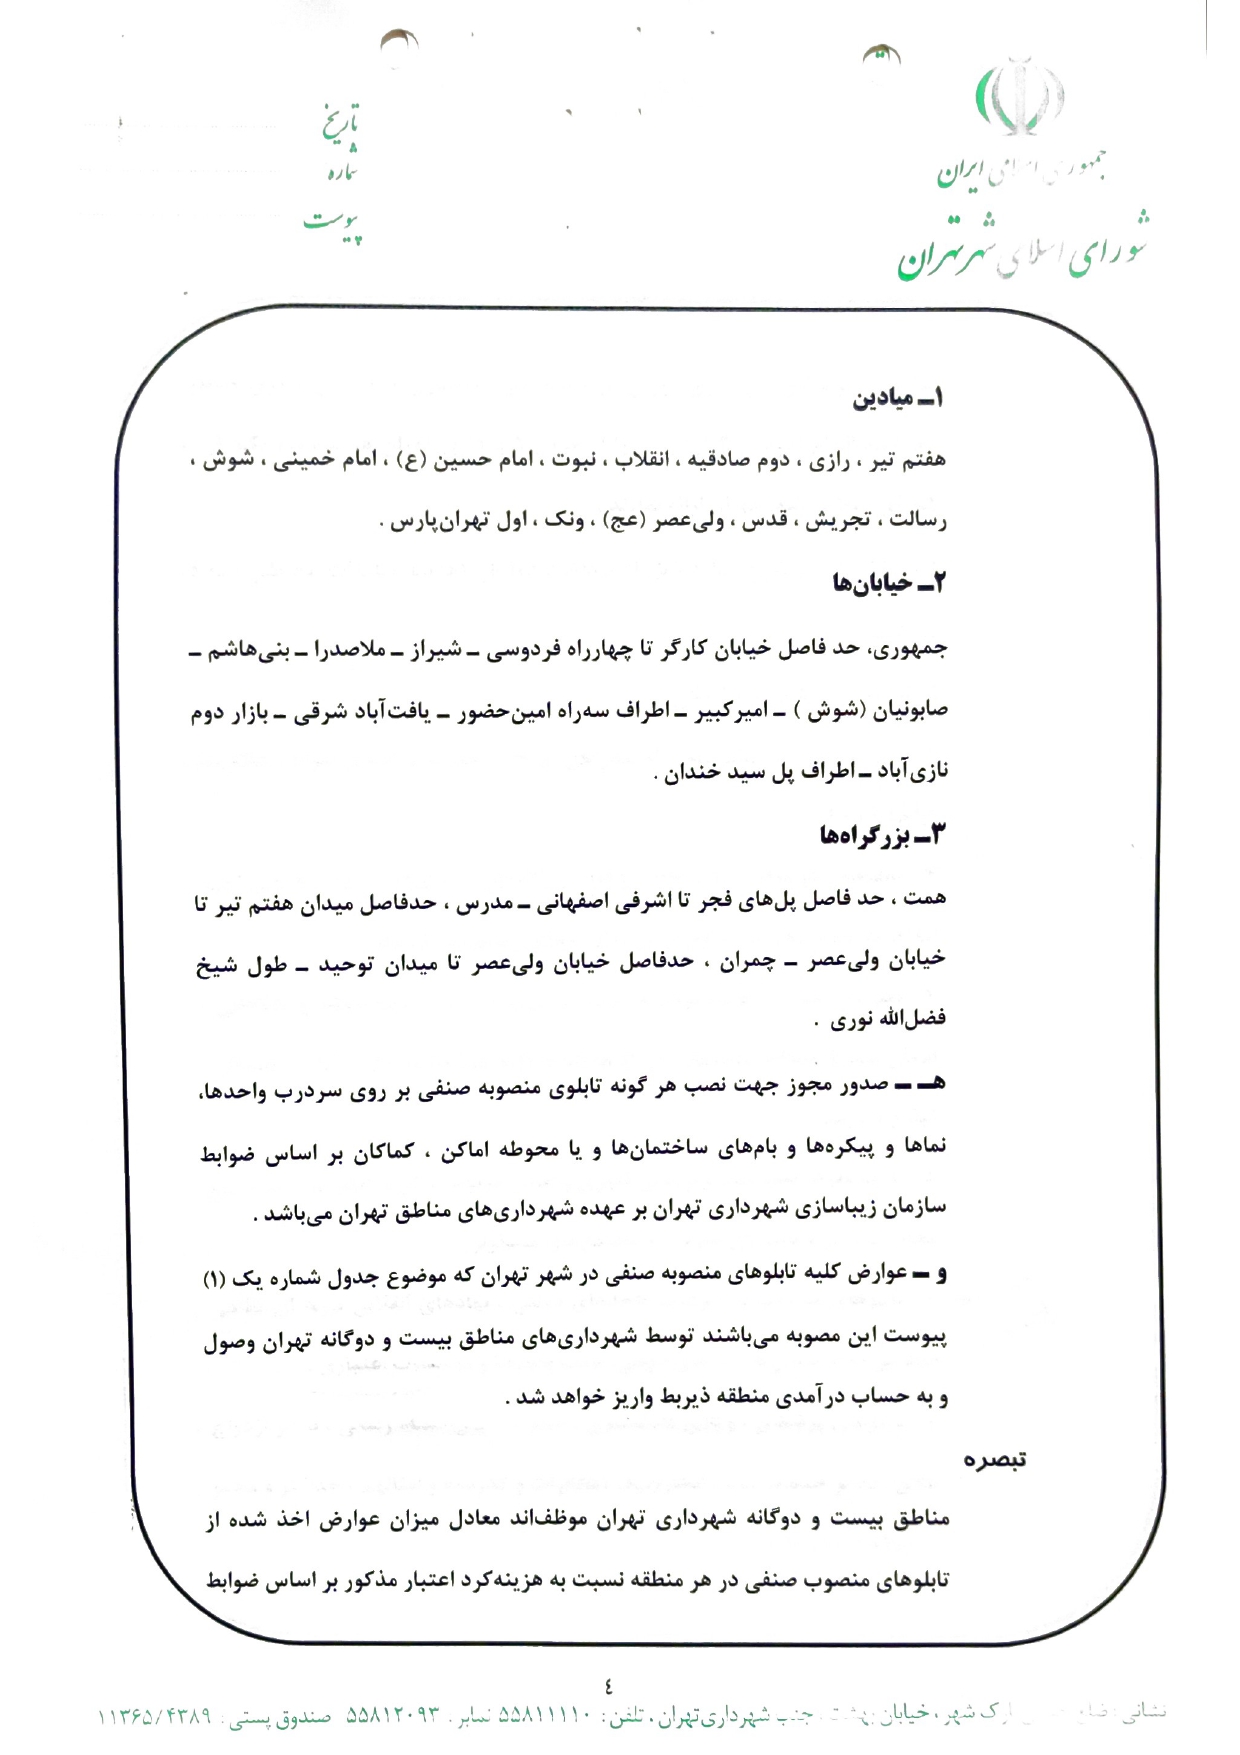 جمهوری اسلامی ایران
شورای اسلامی شهر تهران
تاریخ
شماره
پیوست
۱ـ میادین
هفتم تیر ، رازی ، دوم صادقیه ، انقلاب ، نبوت ، امام حسین (ع) ، امام خمینی ، شوش ،
رسالت ، تجریش ، قدس ، ولی‌عصر (عج) ، ونک ، اول تهران‌پارس .
۲ـ خیابان‌ها
جمهوری، حد فاصل خیابان کارگر تا چهارراه فردوسی ـ شیراز ـ ملاصدرا ـ بنی‌هاشم ـ
صابونیان (شوش ) ـ امیرکبیر ـ اطراف سه‌راه امین‌حضور ـ یافت‌آباد شرقی ـ بازار دوم
نازی‌آباد ـ اطراف پل سید خندان .
۳ـ بزرگراه‌ها
همت ، حد فاصل پل‌های فجر تا اشرفی اصفهانی ـ مدرس ، حدفاصل میدان هفتم تیر تا
خیابان ولی‌عصر ـ چمران ، حدفاصل خیابان ولی‌عصر تا میدان توحید ـ طول شیخ
فضل‌الله نوری .
هـ ـ صدور مجوز جهت نصب هر گونه تابلوی منصوبه صنفی بر روی سردرب واحدها،
نماها و پیکره‌ها و بام‌های ساختمان‌ها و یا محوطه اماکن ، کماکان بر اساس ضوابط
سازمان زیباسازی شهرداری تهران بر عهده شهرداری‌های مناطق تهران می‌باشد .
و ـ عوارض کلیه تابلوهای منصوبه صنفی در شهر تهران که موضوع جدول شماره یک (۱)
پیوست این مصوبه می‌باشند توسط شهرداری‌های مناطق بیست و دوگانه تهران وصول
و به حساب درآمدی منطقه ذیربط واریز خواهد شد .
تبصره
مناطق بیست و دوگانه شهرداری تهران موظف‌اند معادل میزان عوارض اخذ شده از
تابلوهای منصوب صنفی در هر منطقه نسبت به هزینه‌کرد اعتبار مذکور بر اساس ضوابط
٤
نشانی : ضلع پارک شهر ، خیابان بهشت ، جنب شهرداری تهران ، تلفن : ۵۵۸۱۱۱۱۰ نمابر : ۵۵۸۱۲۰۹۳ صندوق پستی : ۱۱۳۶۵/۴۳۸۹